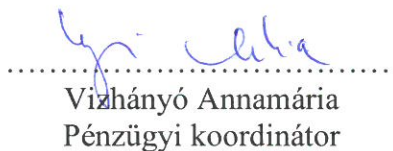 Vizhányó Annamária
Pénzügyi koordinátor